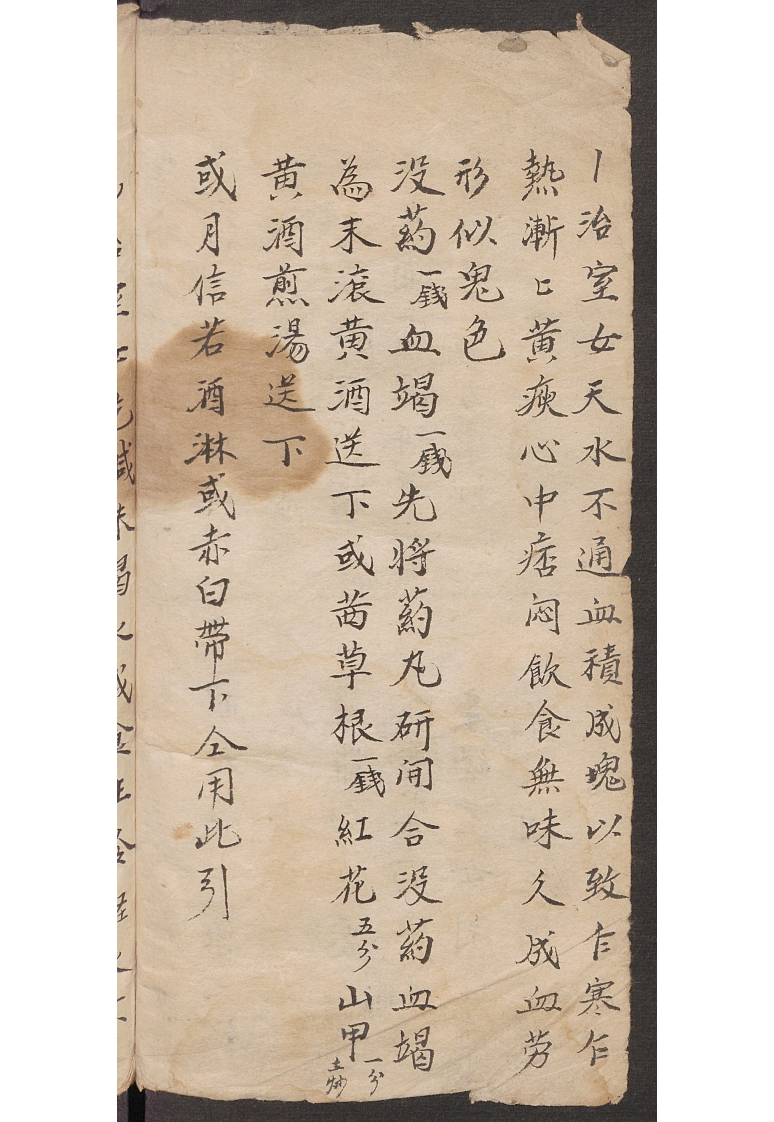 丨治室女天水不通血積成塊以致乍寒乍
熱漸〻黄瘐心中痞闷飲食無味久成血劳
形似鬼色
没葯一錢血竭一錢先将葯丸研闭合没葯血竭
為末滚黄酒送下或茜草根一錢紅花五分山甲一分土炒
黄酒煎湯送下
或月信若酒淋或赤白帶下仝用此引